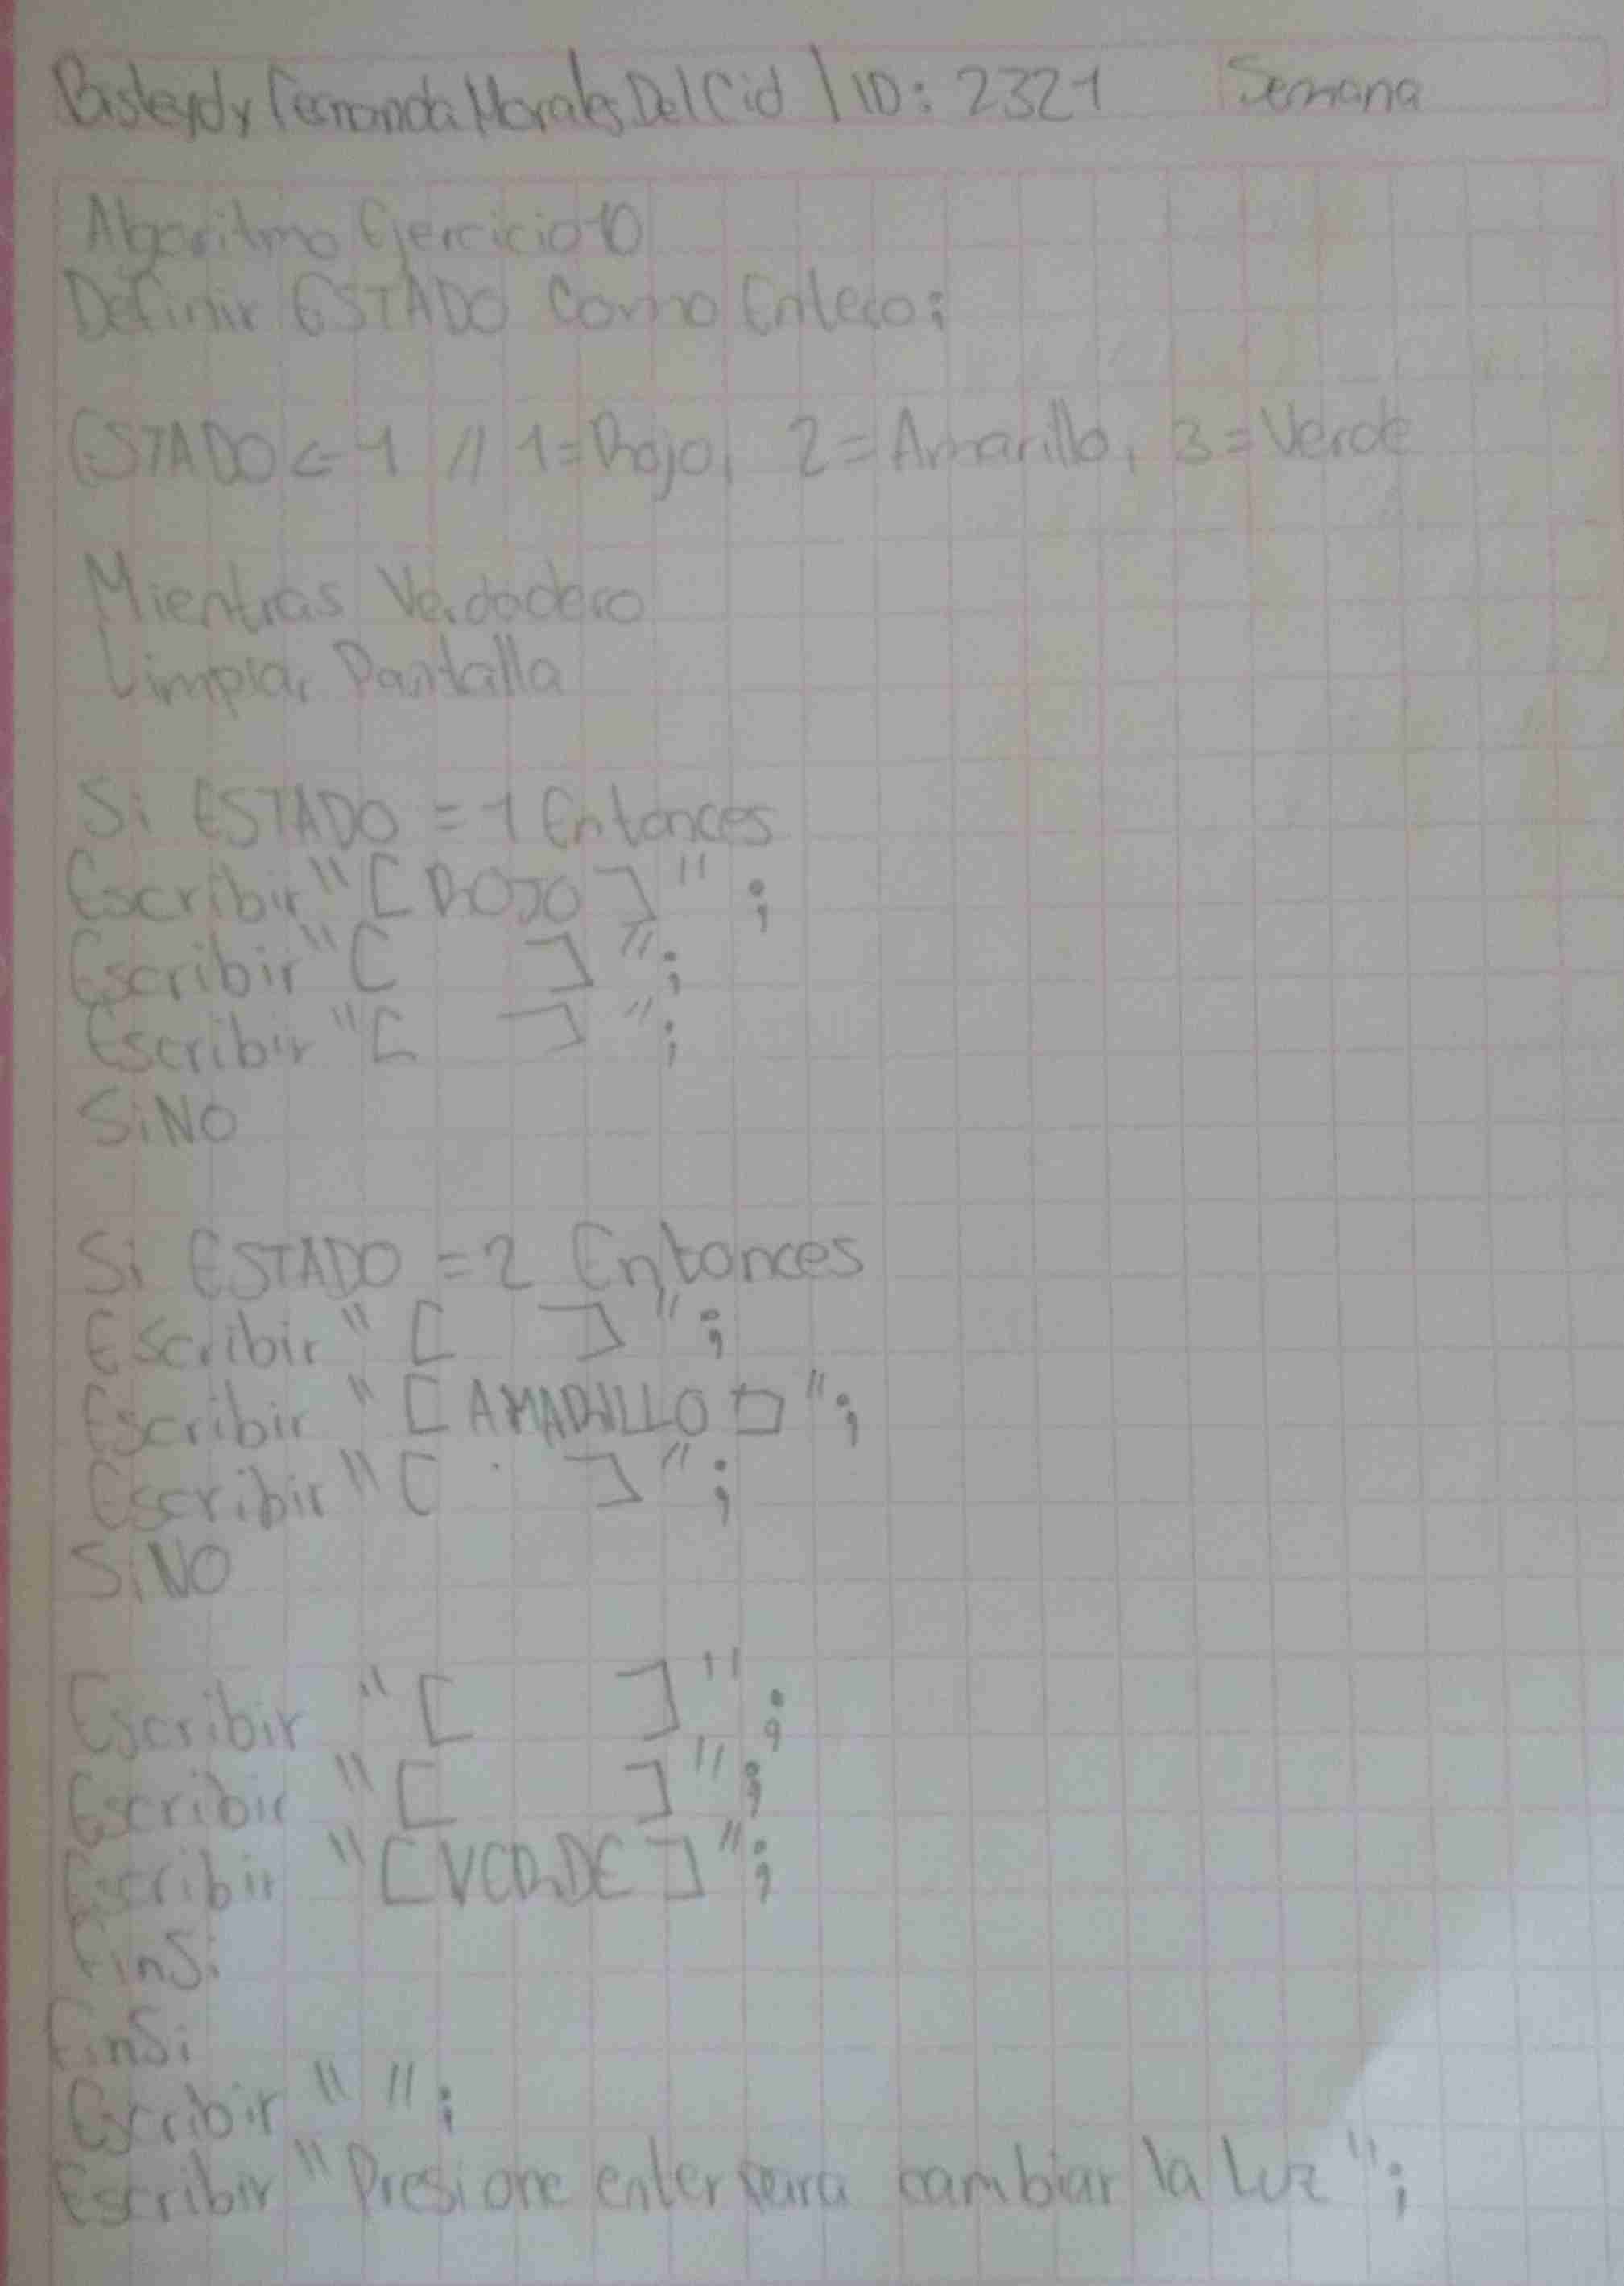 Fernanda Morales Del Cid | ID: 2321 Semana
Algoritmo Ejercicio 10
Definir ESTADO Como Entero;
ESTADO <- 1 // 1=Rojo, 2=Amarillo, 3=Verde
Mientras Verdadero
Limpiar Pantalla
Si ESTADO = 1 Entonces
Escribir "[ROJO]";
Escribir "[ ]";
Escribir "[ ]";
SiNO
Si ESTADO = 2 Entonces
Escribir "[ ]";
Escribir "[AMARILLO]";
Escribir "[ ]";
SiNO
Escribir "[ ]";
Escribir "[ ]";
Escribir "[VERDE]";
FinSi
FinSi
Escribir " ";
Escribir "Presione enter para cambiar la luz";